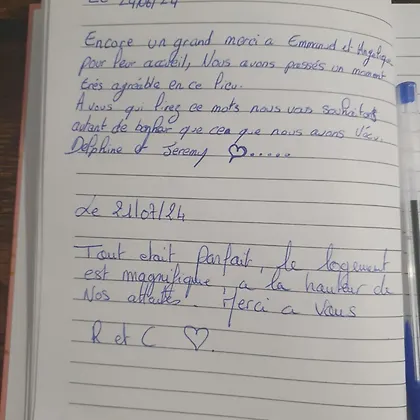 Le 24/06/24
Encore un grand merci a Emmanuel et Angelique
pour leur accueil, Nous avons passés un moment
très agréable en ce lieu.
A vous qui lirez ce mots nous vous souhaitons
autant de bonheur que ceu que nous avons Vécu.
Delphine et Jeremy ♡.....
Le 21/07/24
Tout etait parfait, le logement
est magnifique, a la hauteur de
Nos attentes. Merci a Vous
R et C ♡.